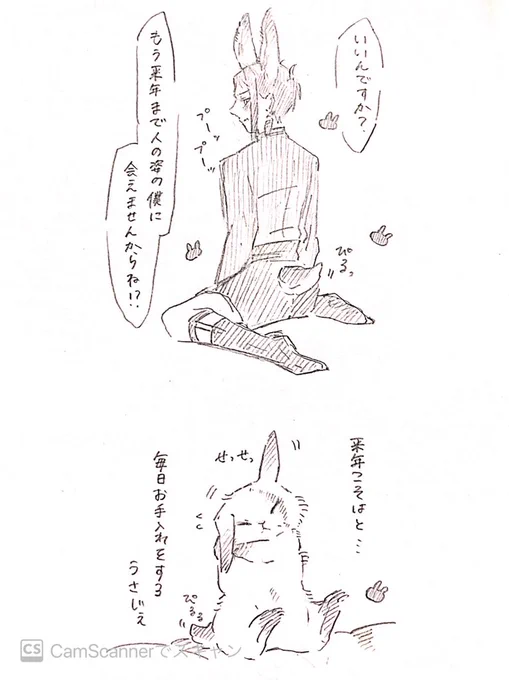 いいんですか?
もう来年まで人の姿の僕に
会えませんからね!?
プーッ
プーッ
ぴるっ
来年こそはと…
せっせっ
毎日お手入れをする
うさじぇ
ぴるる
CS CamScannerでスキャン